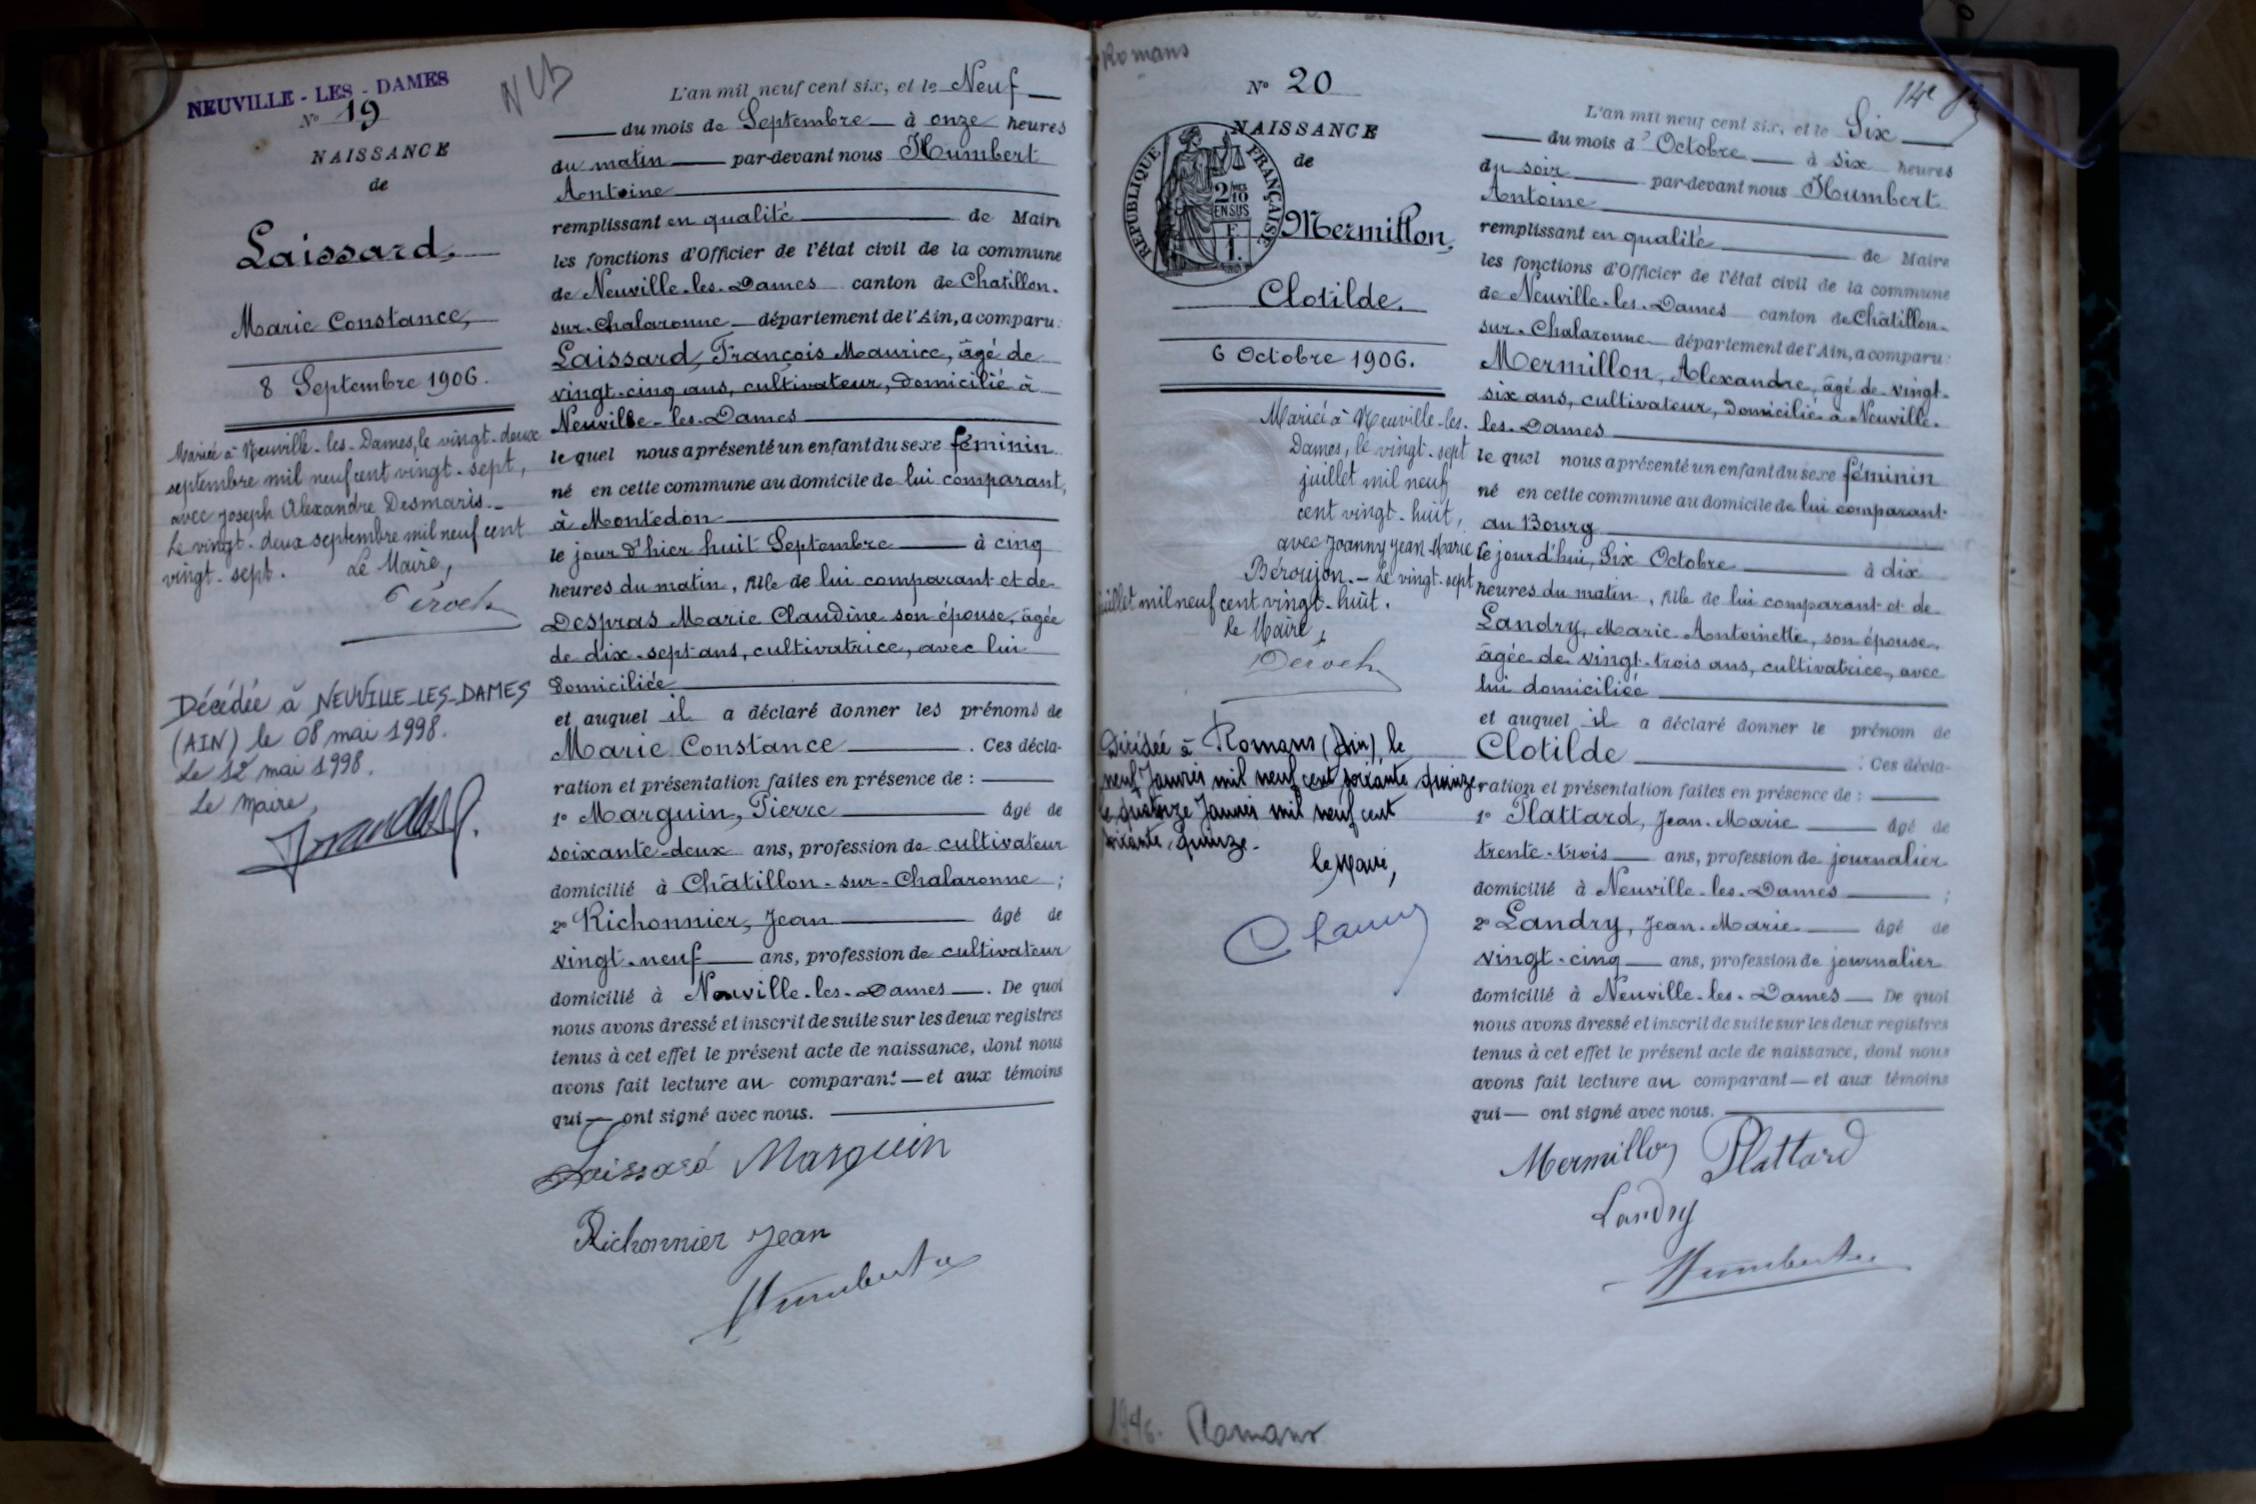 NEUVILLE - LES - DAMES
No 19
NAISSANCE
de
Laissard,
Marie Constance,
8 Septembre 1906.
Mariée à Neuville-les-Dames, le vingt-deux
septembre mil neuf cent vingt-sept,
avec Joseph Alexandre Desmaris.-
Le vingt-deux septembre mil neuf cent
vingt-sept. Le Maire,
Décédée à NEUVILLE-LES-DAMES
(AIN) le 08 mai 1998.
Le 12 mai 1998.
Le maire,
L'an mil neuf cent six, et le Neuf
du mois de Septembre à onze heures
du matin par-devant nous Humbert
Antoine
remplissant en qualité de Maire
les fonctions d'Officier de l'état civil de la commune
de Neuville-les-Dames canton de Chatillon-
sur-Chalaronne département de l'Ain, a comparu:
Laissard, François Maurice, âgé de
vingt-cinq ans, cultivateur, domicilié à
Neuville-les-Dames
lequel nous a présenté un enfant du sexe féminin
né en cette commune au domicile de lui comparant,
à Montédon
le jour d'hier huit Septembre à cinq
heures du matin, fille de lui comparant et de
Despras Marie Claudine son épouse, âgée
de dix-sept ans, cultivatrice, avec lui
domiciliée
et auquel il a déclaré donner les prénoms de
Marie Constance . Ces décla-
ration et présentation faites en présence de :
1o Marguin, Pierre âgé de
soixante-deux ans, profession de cultivateur
domicilié à Châtillon-sur-Chalaronne ;
2o Richonnier, Jean âgé de
vingt-neuf ans, profession de cultivateur
domicilié à Neuville-les-Dames . De quoi
nous avons dressé et inscrit de suite sur les deux registres
tenus à cet effet le présent acte de naissance, dont nous
avons fait lecture au comparant — et aux témoins
qui — ont signé avec nous.
Laissard Marguin
Richonnier Jean
Humbert
Romans
No 20
NAISSANCE
de
RÉPUBLIQUE FRANÇAISE
2/10
EN SUS
Mermillon,
Clotilde,
6 Octobre 1906.
Mariée à Neuville-les-
Dames, le vingt-sept
juillet mil neuf
cent vingt-huit,
avec Joanny Jean Marie
Béroujon.- Le vingt-sept
juillet mil neuf cent vingt-huit.
Le Maire,
Décédée à Romans (Ain) le
neuf Janvier mil neuf cent soixante quinze
le quatorze Janvier mil neuf cent
soixante quinze.
le Maire,
14e
L'an mil neuf cent six, et le Six
du mois d'Octobre à six heures
du soir par-devant nous Humbert
Antoine
remplissant en qualité de Maire
les fonctions d'Officier de l'état civil de la commune
de Neuville-les-Dames canton de Châtillon-
sur-Chalaronne département de l'Ain, a comparu:
Mermillon, Alexandre, âgé de vingt-
six ans, cultivateur, domicilié à Neuville-
les-Dames
lequel nous a présenté un enfant du sexe féminin
né en cette commune au domicile de lui comparant
au Bourg
le jour d'hui, Six Octobre à dix
heures du matin, fille de lui comparant et de
Landry, Marie Antoinette, son épouse,
âgée de vingt-trois ans, cultivatrice, avec
lui domiciliée
et auquel il a déclaré donner le prénom de
Clotilde . Ces décla-
ration et présentation faites en présence de :
1o Plattard, Jean-Marie âgé de
trente-trois ans, profession de journalier
domicilié à Neuville-les-Dames ;
2o Landry, Jean-Marie âgé de
vingt-cinq ans, profession de journalier
domicilié à Neuville-les-Dames De quoi
nous avons dressé et inscrit de suite sur les deux registres
tenus à cet effet le présent acte de naissance, dont nous
avons fait lecture au comparant — et aux témoins
qui — ont signé avec nous.
Mermillon Plattard
Landry
Humbert
Romans